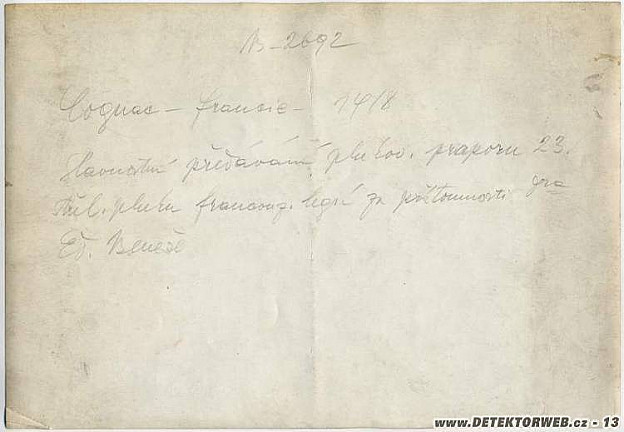 B-2692
Cognac - Francie - 1918
Slavnostní předávání plukov. praporu 23.
střel. pluku francouz. legií za přítomnosti dra
Ed. Beneše
www.DETEKTORWEB.cz - 13